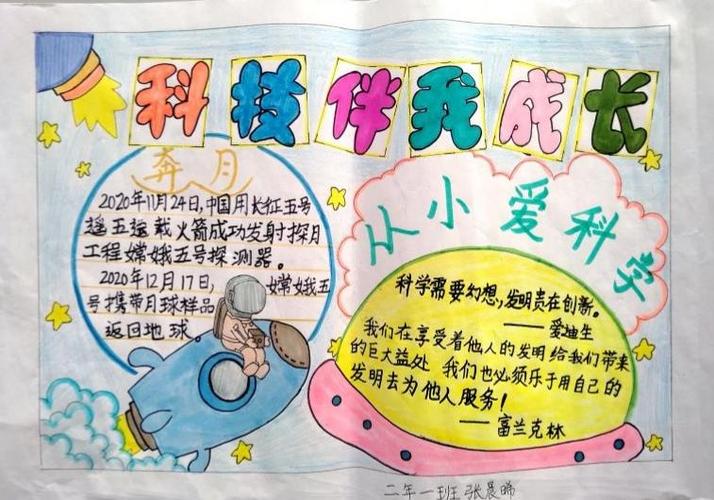 科技伴我成长
奔月
2020年11月24日,中国用长征五号
遥五运载火箭成功发射探月
工程嫦娥五号探测器。
2020年12月17日,嫦娥五
号携带月球样品
返回地球
从小爱科学
科学需要幻想,发明贵在创新。
——爱迪生
我们在享受着他人的发明给我们带来
的巨大益处 我们也必须乐于用自己的
发明去为他人服务!
——富兰克林
二年一班 张晨晞